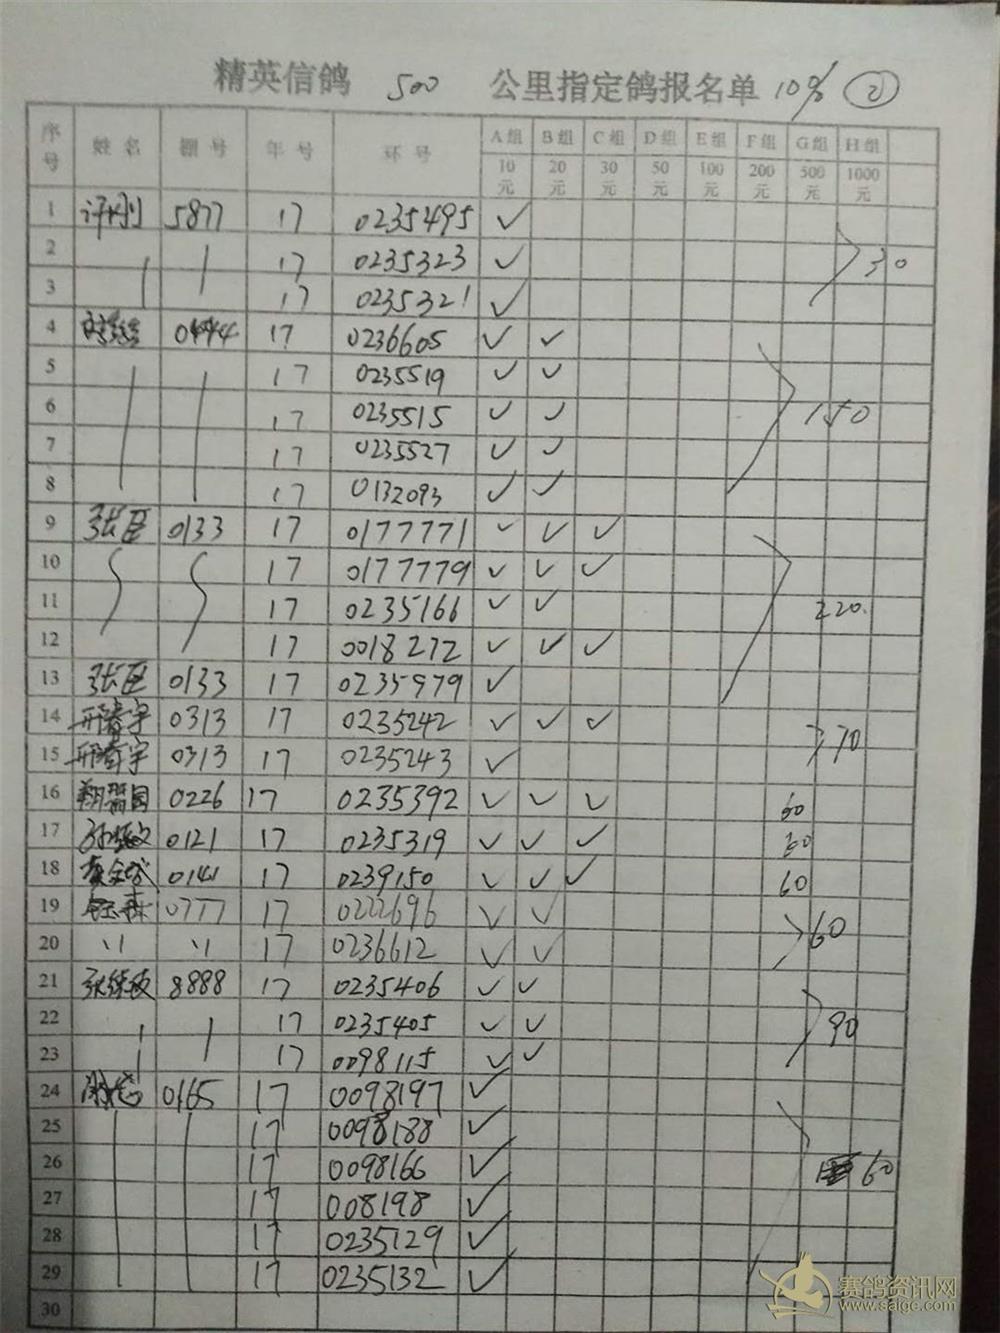 精英信鸽 500 公里指定鸽报名单 10% ②
序号 姓名 棚号 年号 环号 A组 B组 C组 D组 E组 F组 G组 H组
10元 20元 30元 50元 100元 200元 500元 1000元
1 许刚 5877 17 0235495 ✓
2 17 0235323 ✓ 30
3 17 0235321 ✓
4 0444 17 0236605 ✓ ✓
5 17 0235519 ✓ ✓
6 17 0235515 ✓ ✓ 150
7 17 0235527 ✓ ✓
8 17 0132093 ✓ ✓
9 张臣 0133 17 0177771 ✓ ✓ ✓
10 17 0177779 ✓ ✓ ✓
11 17 0235166 ✓ ✓ 220.
12 17 0018272 ✓ ✓ ✓
13 张臣 0133 17 0235979 ✓
14 邢春宇 0313 17 0235242 ✓ ✓ ✓ 70
15 邢春宇 0313 17 0235243 ✓
16 0226 17 0235392 ✓ ✓ ✓ 60
17 0121 17 0235319 ✓ ✓ ✓ 60
18 0141 17 0239150 ✓ ✓ ✓ 60
19 0777 17 0222696 ✓ ✓ 60
20 〃 〃 17 0236612 ✓ ✓
21 8888 17 0235406 ✓ ✓
22 17 0235405 ✓ ✓ 90
23 17 0098115 ✓ ✓
24 0165 17 0098197 ✓
25 17 0098188 ✓
26 17 0098166 ✓ 60
27 17 008198 ✓
28 17 0235129 ✓
29 17 0235132 ✓
30
赛鸽资讯网
www.saigc.com